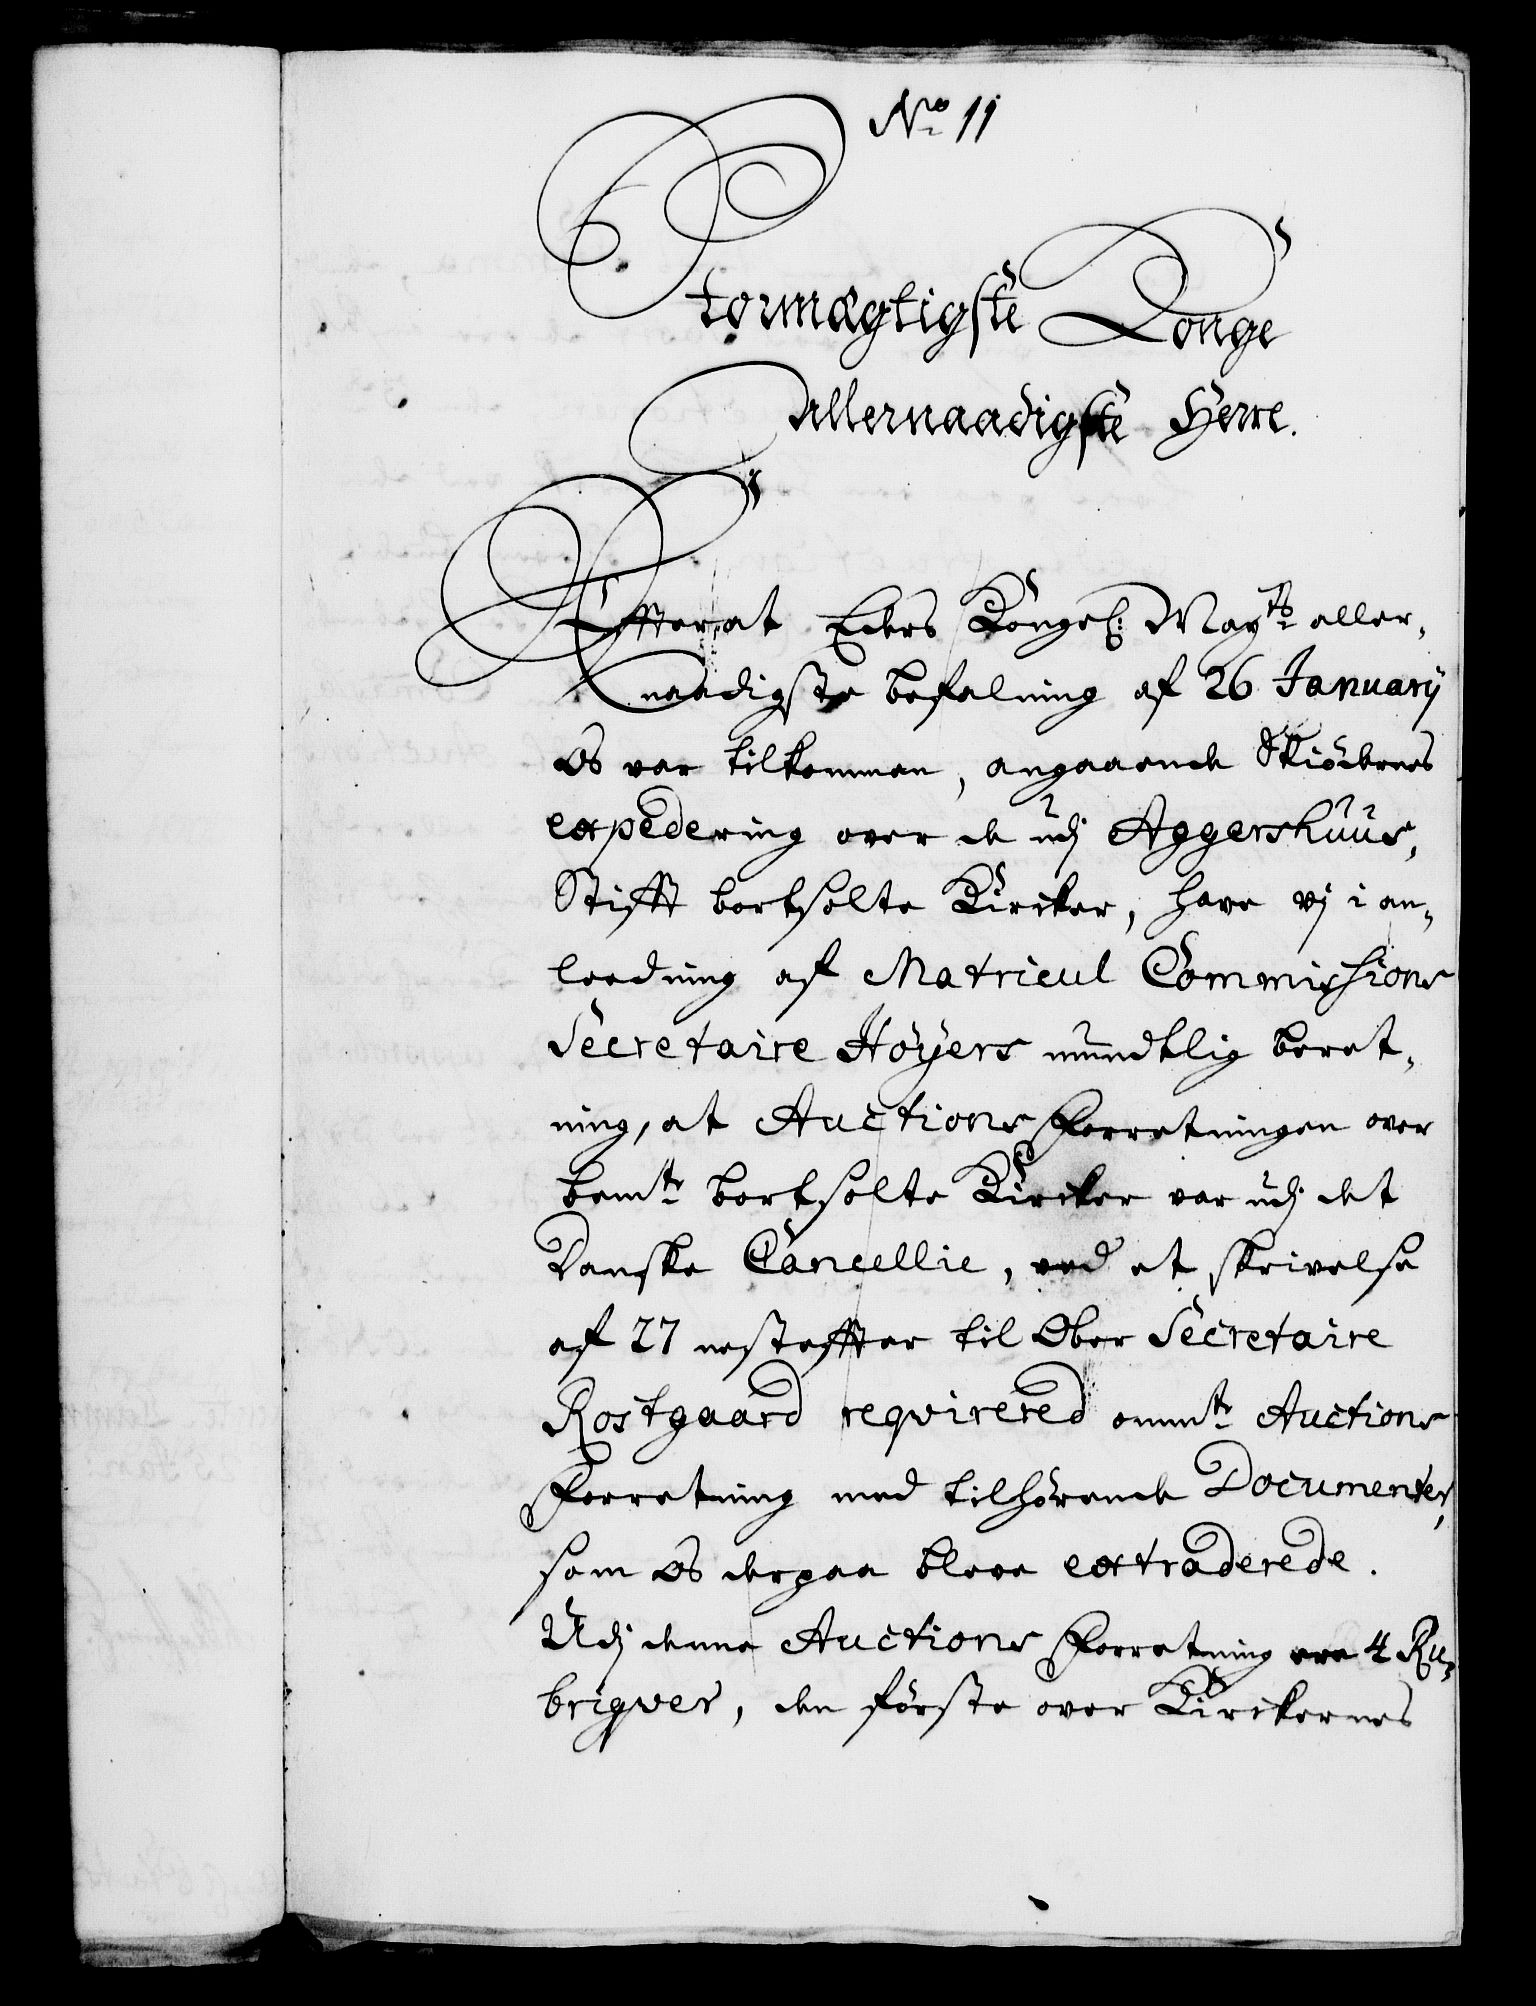 No 11
Stormægtigste Konge
allernaadigste Herre.
Effterat Eders Kongel: Mayts aller,
naadigste befalning af 26 Januarij
Os var tilkommen, angaaende Skiödernes
expedering over de udj Aggershuus,
Stifft bortsolte Kircker, have vj i an,
leedning af Matricul Commissions
Secretaire Höyers mundtlig beret,
ning, at Auctions Forretningen over
bemte bortsolte Kircker var udj det
Danske Cancellie, ved et skrivelse
af 27 nesteffter til Ober Secretaire
Rostgaard reqvirered ommte Auctions
Forretning med tilhörende Documenter,
som Os derpaa bleve extraderede.
Udj denne Auctions Forretning ere 4 Ru,
briqver, den förste over Kirckernes